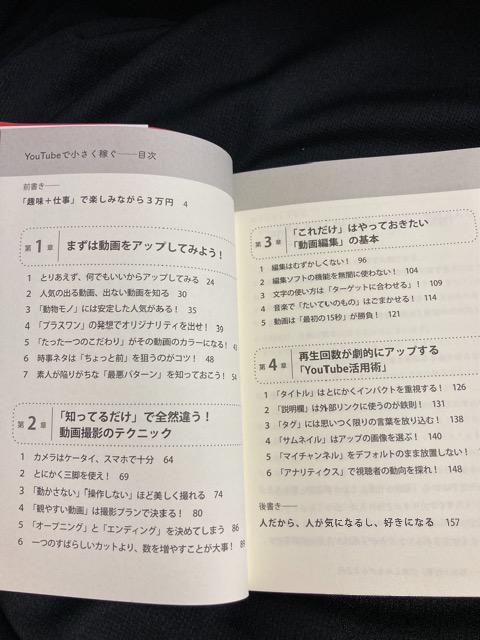 YouTubeで小さく稼ぐ——目次
前書き——
「趣味＋仕事」で楽しみながら３万円 4
第1章 まずは動画をアップしてみよう！
1 とりあえず、何でもいいからアップしてみる 24
2 人気の出る動画、出ない動画を知る 30
3 「動物モノ」には安定した人気がある！ 35
4 「プラスワン」の発想でオリジナリティを出せ！ 39
5 「たった一つのこだわり」がその動画のカラーになる！ 43
6 時事ネタは「ちょっと前」を狙うのがコツ！ 48
7 素人が陥りがちな「最悪パターン」を知っておこう！ 54
第2章 「知ってるだけ」で全然違う！
動画撮影のテクニック
1 カメラはケータイ、スマホで十分 64
2 とにかく三脚を使え！ 69
3 「動かさない」「操作しない」ほど美しく撮れる 74
4 「観やすい動画」は撮影プランで決まる！ 80
5 「オープニング」と「エンディング」を決めてしまう 86
6 一つのすばらしいカットより、数を増やすことが大事！ 89
第3章 「これだけ」はやっておきたい
「動画編集」の基本
1 編集はむずかしくない！ 96
2 編集ソフトの機能を無闇に使わない！ 104
3 文字の使い方は「ターゲットに合わせる」！ 109
4 音楽で「たいていのもの」はごまかせる！ 114
5 動画は「最初の15秒」が勝負！ 121
第4章 再生回数が劇的にアップする
「YouTube活用術」
1 「タイトル」はとにかくインパクトを重視する！ 126
2 「説明欄」は外部リンクに使うのが鉄則！ 131
3 「タグ」には思いつく限りの言葉を放り込む！ 138
4 「サムネイル」はアップの画像を選ぶ！ 140
5 「マイチャンネル」をデフォルトのまま放置しない！
6 「アナリティクス」で視聴者の動向を探れ！ 148
後書き——
人だから、人が気になるし、好きになる 157